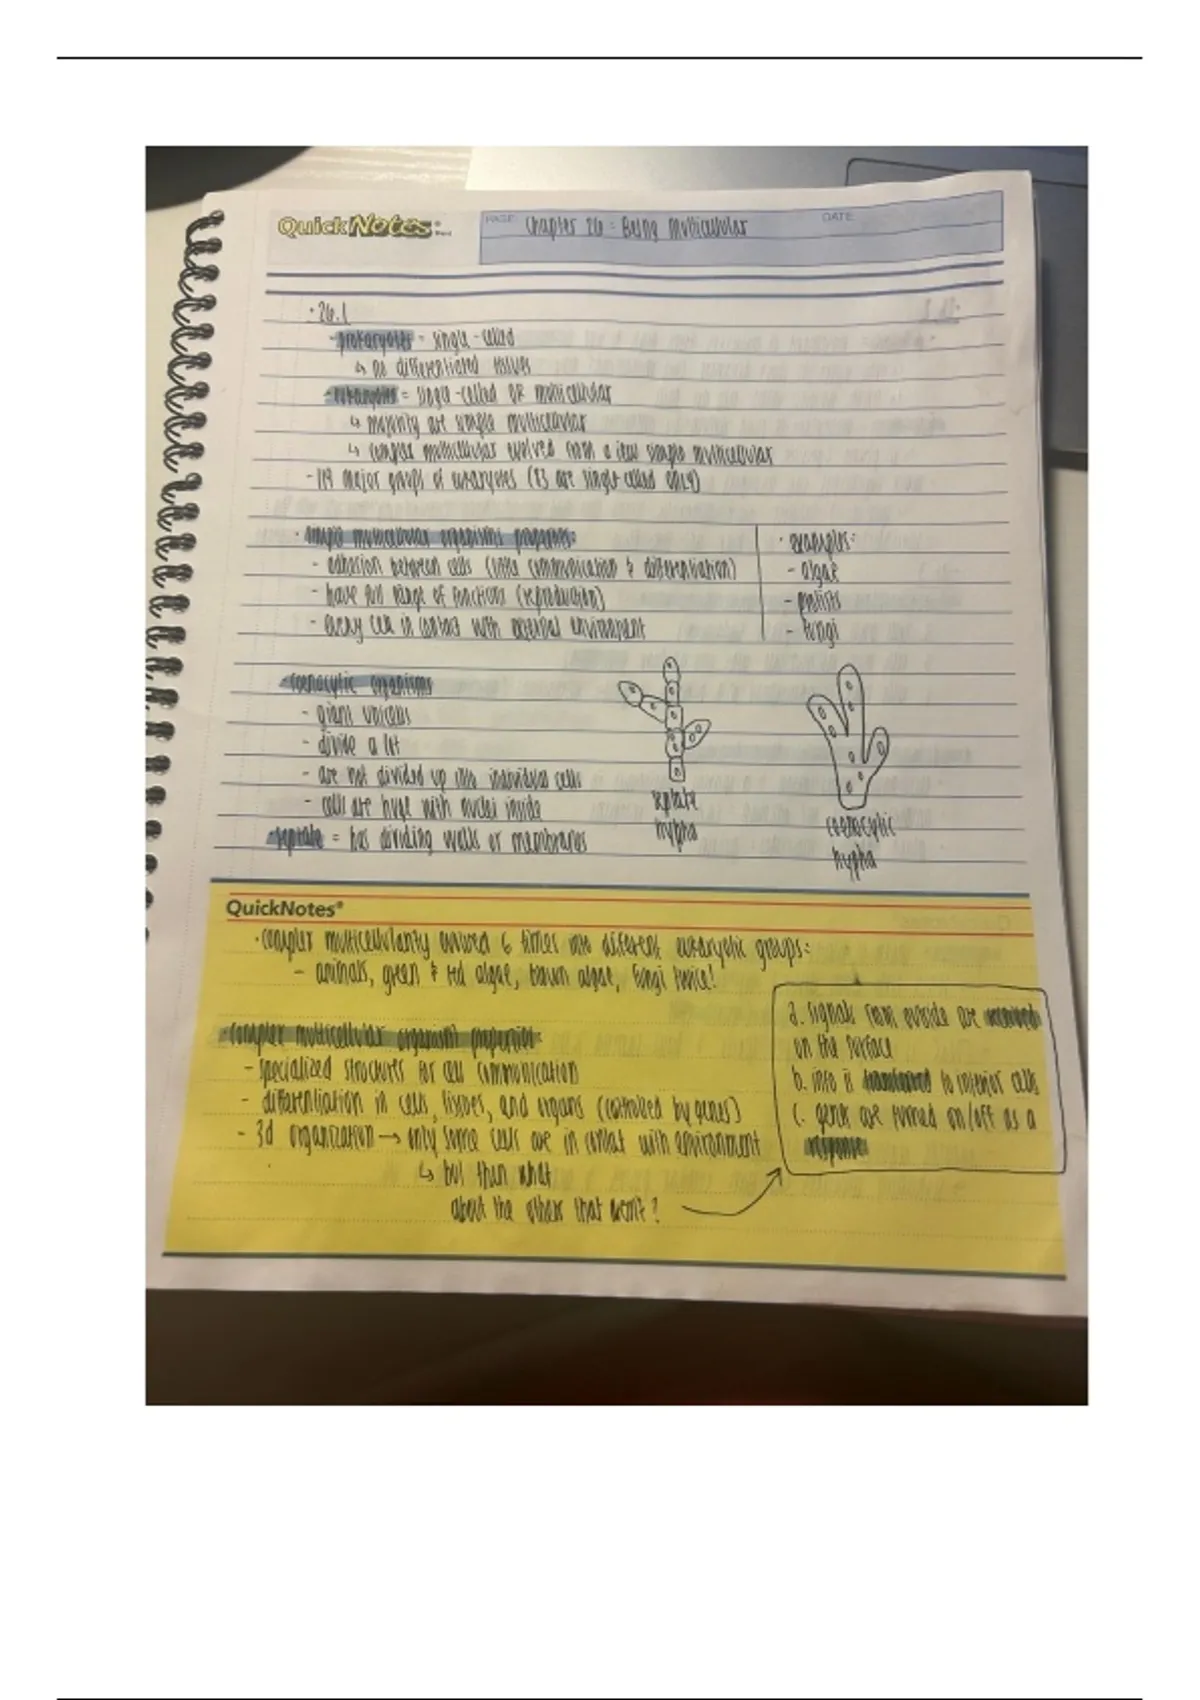 QuickNotes®
PAGE
Chapter 26: Being Multicellular
DATE
· 26.1
- prokaryotes = single-celled
↳ no differentiated tissues
- eukaryotes = single-celled OR multicellular
↳ majority are simple multicellular
↳ complex multicellular evolved from a few simple multicellular
- 119 major groups of eukaryotes (83 are single-celled only)
· simple multicellular organisms properties:
- adhesion between cells (little communication & differentiation)
- have full range of functions (reproduction)
- every cell in contact with external environment
· examples:
- algae
- protists
- fungi
- coenocytic organisms
- giant unicells
- divide a lot
- are not divided up into individual cells
- cells are huge with nuclei inside
- septate = has dividing walls or membranes
septate
hypha
coenocytic
hypha
QuickNotes®
· complex multicellularity evolved 6 times into different eukaryotic groups:
- animals, green & red algae, brown algae, fungi twice!
· complex multicellular organism properties:
- specialized structures for cell communication
- differentiation in cells, tissues, and organs (controlled by genes)
- 3d organization → only some cells are in contact with environment
↳ but then what
about the others that aren't?
a. signals from outside are received
on the surface
b. info is transferred to interior cells
c. genes are turned on/off as a
response